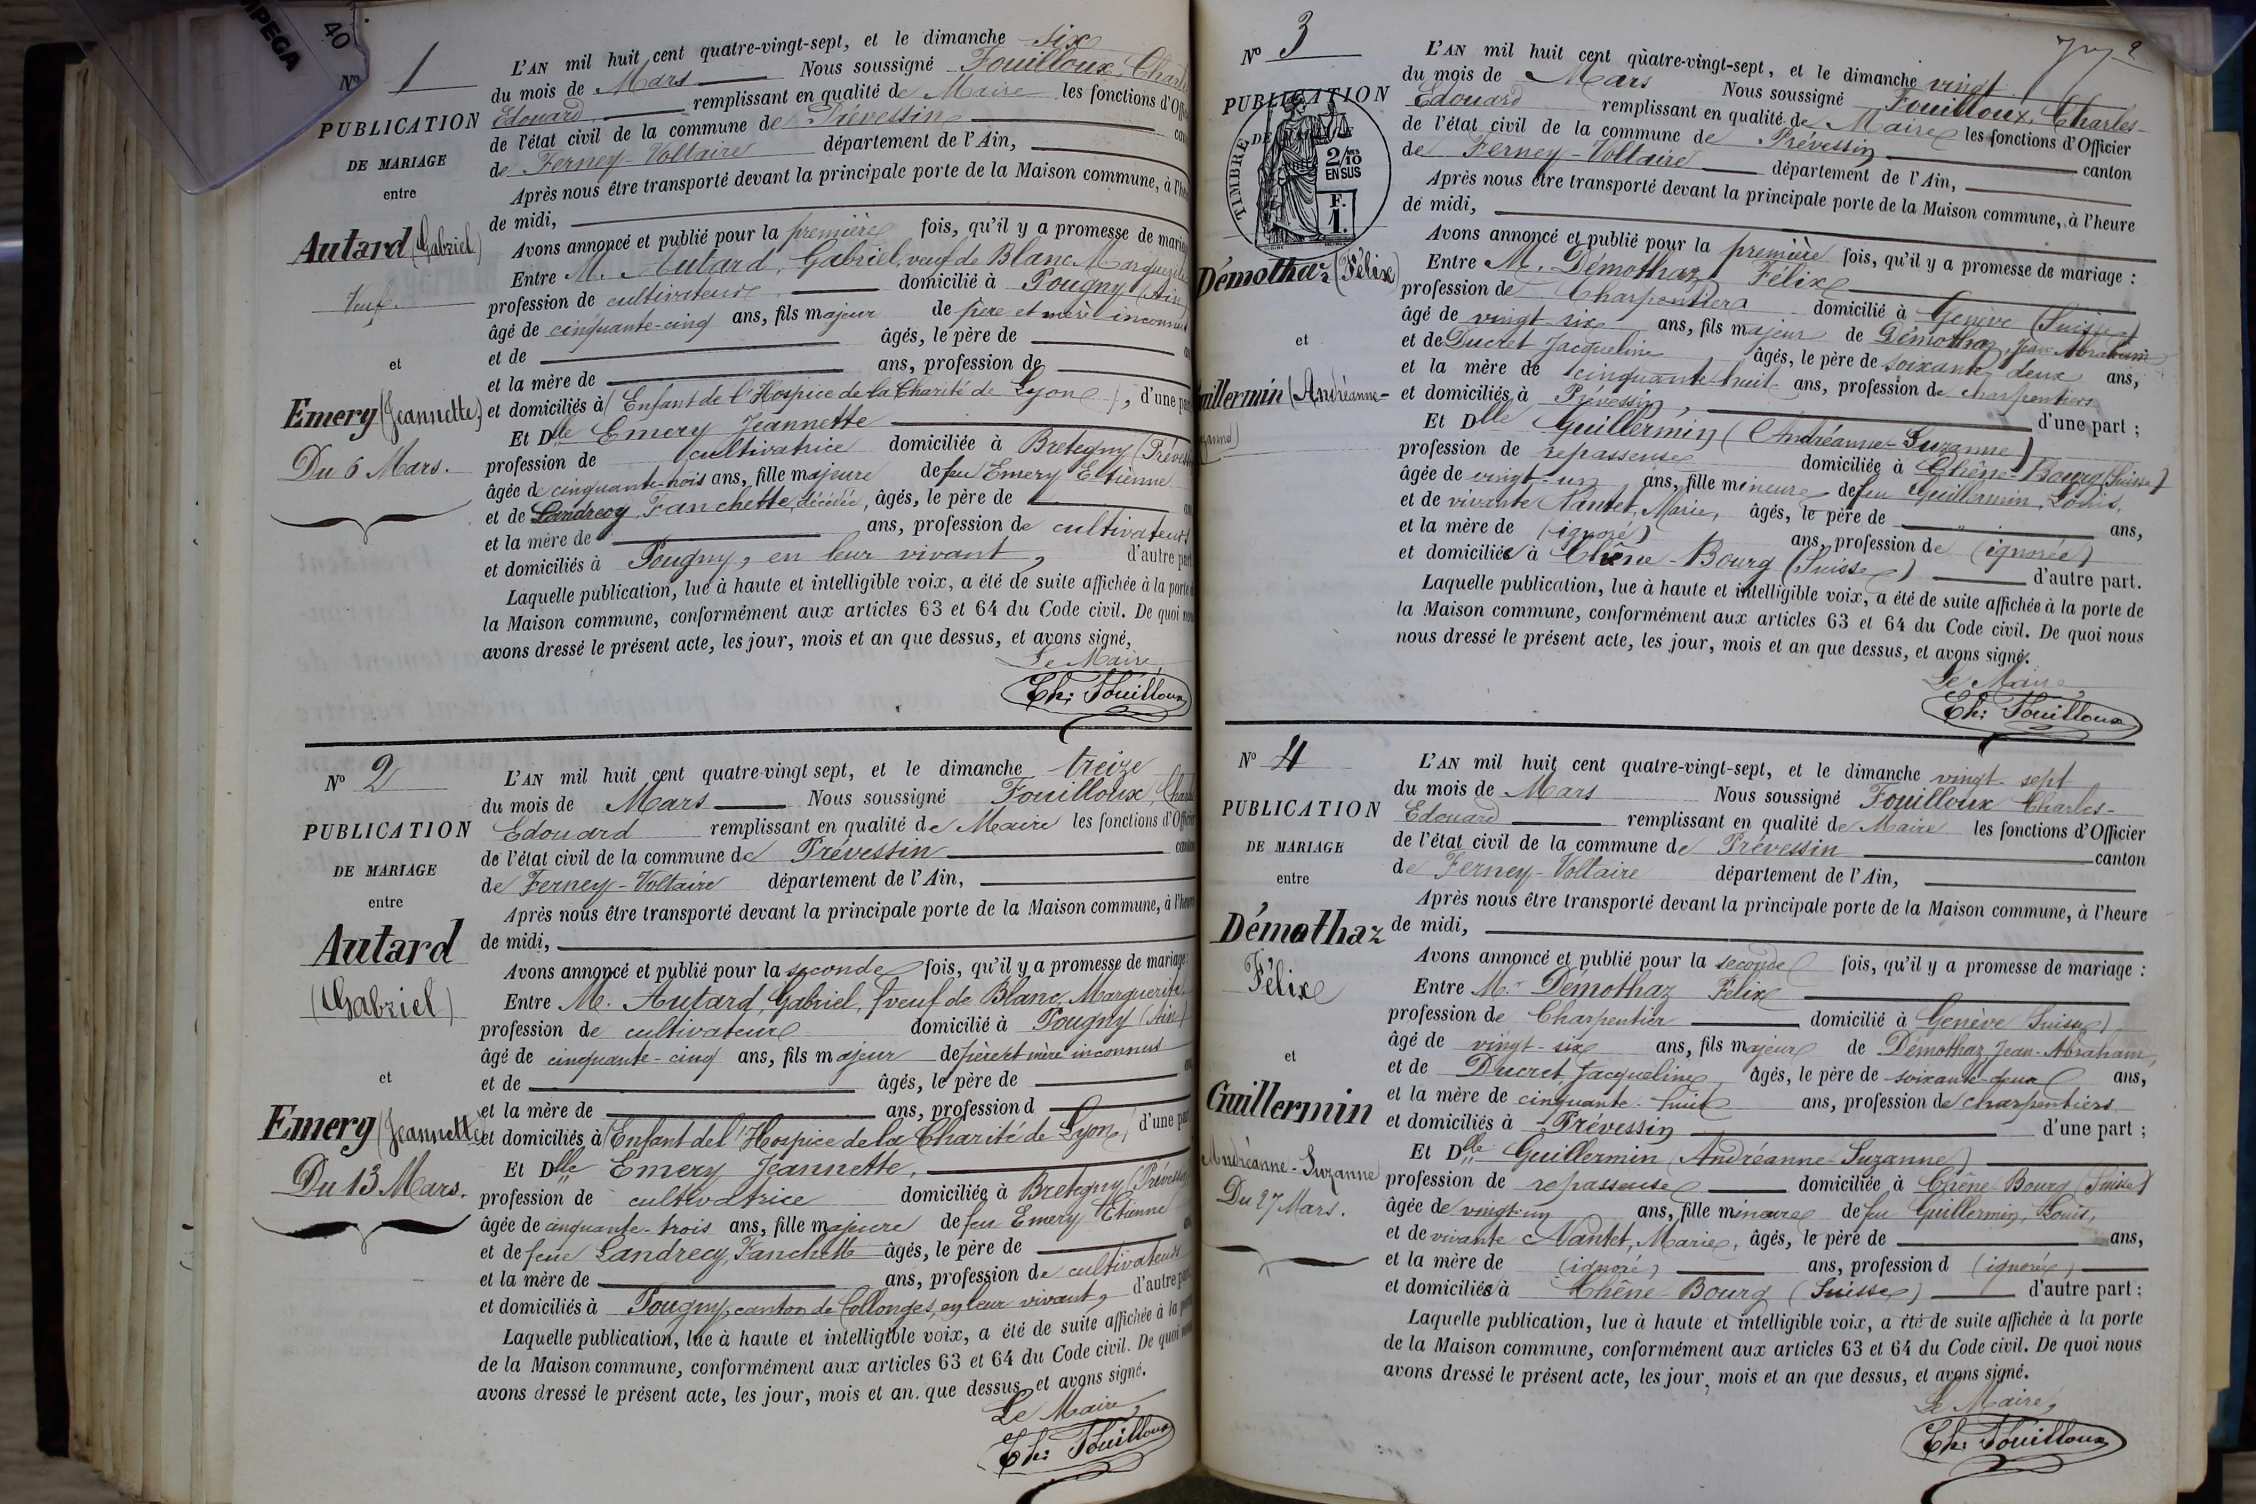 MPEGA
40
N° 1
PUBLICATION
DE MARIAGE
entre
Autard (Gabriel)
Veuf.
et
Emery (Jeannette)
Du 6 Mars.
L'AN mil huit cent quatre-vingt-sept, et le dimanche six
du mois de Mars Nous soussigné Fouilloux, Charl
Edouard remplissant en qualité de Maire les fonctions d'Offi
de l'état civil de la commune de Prévessin can
de Ferney-Voltaire département de l'Ain,
Après nous être transporté devant la principale porte de la Maison commune, à l'he
de midi,
Avons annoncé et publié pour la première fois, qu'il y a promesse de maria
Entre M. Autard, Gabriel, veuf de Blanc Marguerite
profession de cultivateur domicilié à Pougny (Ain)
âgé de cinquante-cinq ans, fils majeur de père et mère inconnus
et de âgés, le père de
et la mère de ans, profession de
et domiciliés à (Enfant de l'Hospice de la Charité de Lyon), d'une par
Et Dlle Emery Jeannette
profession de cultivatrice domiciliée à Bretigny (Préves
âgée de cinquante-trois ans, fille majeure de feu Emery Etienne
et de Landrecy Fanchette, décédée, âgés, le père de
et la mère de ans, profession de cultivateurs
et domiciliés à Pougny, en leur vivant, d'autre par
Laquelle publication, lue à haute et intelligible voix, a été de suite affichée à la porte d
la Maison commune, conformément aux articles 63 et 64 du Code civil. De quoi nou
avons dressé le présent acte, les jour, mois et an que dessus, et avons signé,
Le Maire,
Ch: Fouilloux
N° 2
PUBLICATION
DE MARIAGE
entre
Autard
(Gabriel)
et
Emery (Jeannette)
Du 13 Mars.
L'AN mil huit cent quatre-vingt sept, et le dimanche treize
du mois de Mars Nous soussigné Fouilloux, Charl
Edouard remplissant en qualité de Maire les fonctions d'Officier
de l'état civil de la commune de Prévessin canton
de Ferney-Voltaire département de l'Ain,
Après nous être transporté devant la principale porte de la Maison commune, à l'heure
de midi,
Avons annoncé et publié pour la seconde fois, qu'il y a promesse de mariage:
Entre M. Autard, Gabriel, veuf de Blanc, Marguerite
profession de cultivateur domicilié à Pougny (Ain)
âgé de cinquante-cinq ans, fils majeur de père et mère inconnus
et de âgés, le père de an
et la mère de ans, profession d
et domiciliés à (Enfant de l'Hospice de la Charité de Lyon) d'une par
Et Dlle Emery Jeannette,
profession de cultivatrice domiciliée à Bretigny (Prévess
âgée de cinquante-trois ans, fille majeure de feu Emery Etienne
et de feue Landrecy, Fanchette âgés, le père de
et la mère de ans, profession de cultivateurs
et domiciliés à Pougny, canton de Collonges, en leur vivant, d'autre par
Laquelle publication, lue à haute et intelligible voix, a été de suite affichée à la por
de la Maison commune, conformément aux articles 63 et 64 du Code civil. De quoi nou
avons dressé le présent acte, les jour, mois et an que dessus, et avons signé.
Le Maire,
Ch: Fouilloux
2
N° 3
PUBLICATION
DE
TIMBRE
2/10
EN SUS
F.
1.
Démothaz (Félix)
et
uillermin (Andréanne-
L'AN mil huit cent quatre-vingt-sept, et le dimanche vingt
du mois de Mars Nous soussigné Fouilloux, Charles-
Edouard remplissant en qualité de Maire les fonctions d'Officier
de l'état civil de la commune de Prévessin canton
de Ferney-Voltaire département de l'Ain,
Après nous être transporté devant la principale porte de la Maison commune, à l'heure
de midi,
Avons annoncé et publié pour la première fois, qu'il y a promesse de mariage :
Entre M. Démothaz Félix
profession de Charpentier domicilié à Genève (Suisse)
âgé de vingt-six ans, fils majeur de Démothaz, Jean Abraham
et de Ducret Jacqueline âgés, le père de soixante deux ans,
et la mère de cinquante-huit ans, profession de charpentiers
et domiciliés à Prévessin, d'une part ;
Et Dlle Guillermin (Andréanne-Suzanne)
profession de repasseuse domiciliée à Chêne-Bourg (Suisse)
âgée de vingt-un ans, fille mineure de feu Guillermin, Louis,
et de vivante Nantet, Marie, âgés, le père de ans,
et la mère de (ignoré) ans, profession de (ignorée)
et domiciliée à Chêne-Bourg (Suisse) d'autre part.
Laquelle publication, lue à haute et intelligible voix, a été de suite affichée à la porte de
la Maison commune, conformément aux articles 63 et 64 du Code civil. De quoi nous
nous dressé le présent acte, les jour, mois et an que dessus, et avons signé.
Le Maire,
Ch: Fouilloux
N° 4
PUBLICATION
DE MARIAGE
entre
Démothaz
Félix
et
Guillermin
Andréanne-Suzanne
Du 27 Mars.
L'AN mil huit cent quatre-vingt-sept, et le dimanche vingt-sept
du mois de Mars Nous soussigné Fouilloux Charles-
Edouard remplissant en qualité de Maire les fonctions d'Officier
de l'état civil de la commune de Prévessin canton
de Ferney-Voltaire département de l'Ain,
Après nous être transporté devant la principale porte de la Maison commune, à l'heure
de midi,
Avons annoncé et publié pour la seconde fois, qu'il y a promesse de mariage :
Entre M. Démothaz Félix
profession de Charpentier domicilié à Genève (Suisse)
âgé de vingt-six ans, fils majeur de Démothaz, Jean-Abraham,
et de Ducret, Jacqueline, âgés, le père de soixante-deux ans,
et la mère de cinquante-huit ans, profession de charpentiers
et domiciliés à Prévessin d'une part ;
Et Dlle Guillermin (Andréanne-Suzanne)
profession de repasseuse domiciliée à Chêne-Bourg (Suisse)
âgée de vingt-un ans, fille mineure de feu Guillermin, Louis,
et de vivante Nantet, Marie, âgés, le père de ans,
et la mère de (ignoré) ans, profession d (ignorée)
et domiciliée à Chêne-Bourg (Suisse) d'autre part :
Laquelle publication, lue à haute et intelligible voix, a été de suite affichée à la porte
de la Maison commune, conformément aux articles 63 et 64 du Code civil. De quoi nous
avons dressé le présent acte, les jour, mois et an que dessus, et avons signé.
Le Maire,
Ch: Fouilloux